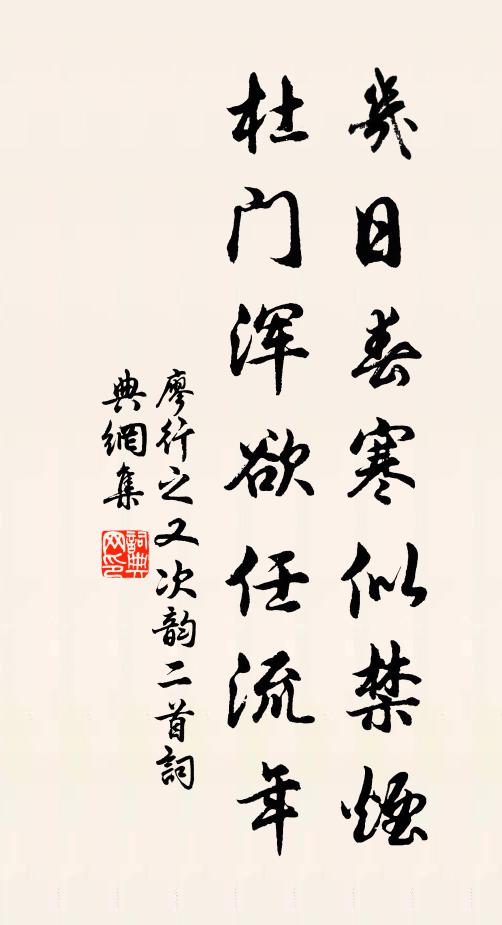 几日春寒似禁烟
杜门浑欲任流年
廖行之又次韵二首詞
典網集
詞典网印